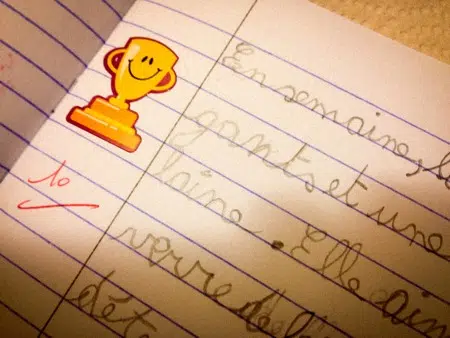 En semaine, l
gants et une
laine. Elle aim
10
verre de l
dét